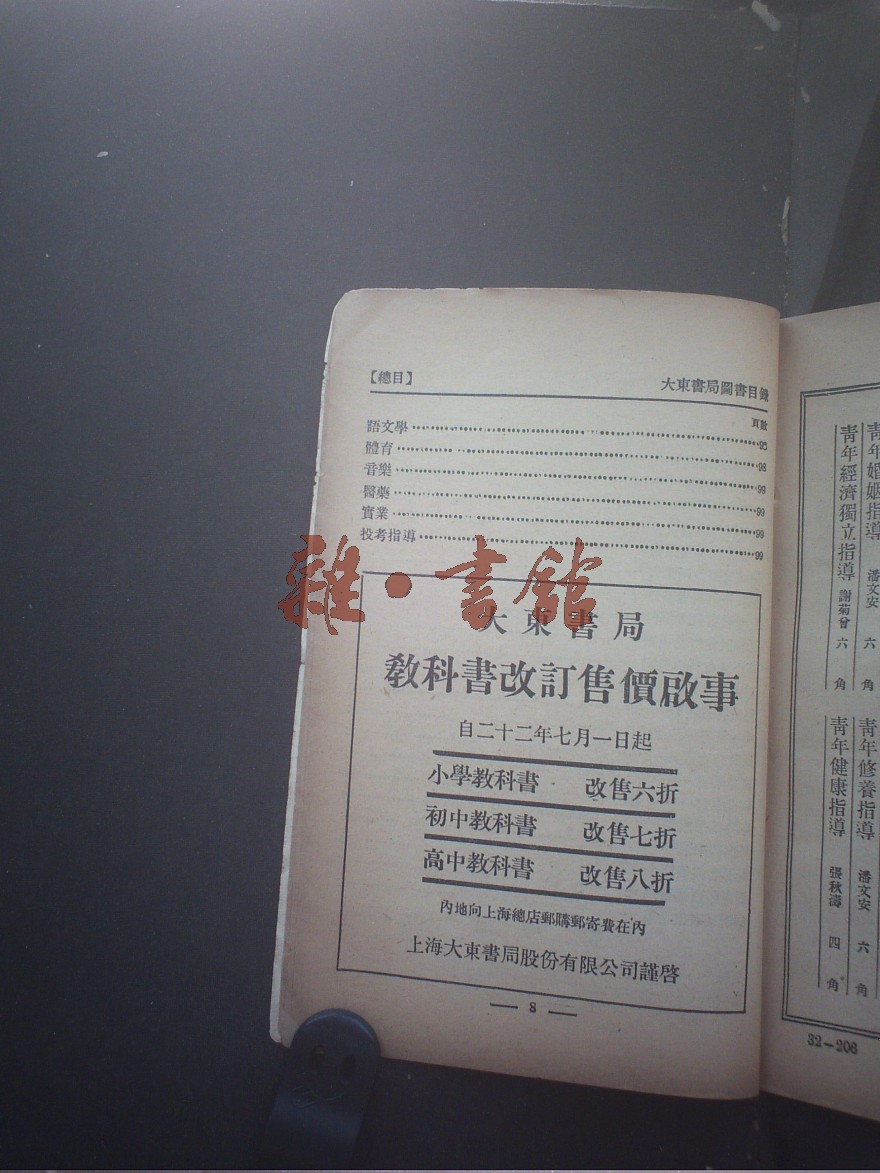 【總目】
大東書局圖書目錄
頁數
語文學 93
體育 98
音樂 99
醫藥 99
實業 99
投考指導 99
雜·書館
大東書局
敎科書改訂售價啟事
自二十二年七月一日起
小學敎科書 改售六折
初中敎科書 改售七折
高中敎科書 改售八折
內地向上海總店郵購郵寄費在內
上海大東書局股份有限公司謹啓
— 8 —
靑年婚姻指導 潘文安 六角
靑年經濟獨立指導 謝菊曾 六角
靑年修養指導 潘文安 六角
靑年健康指導 張秋濤 四角
32—206